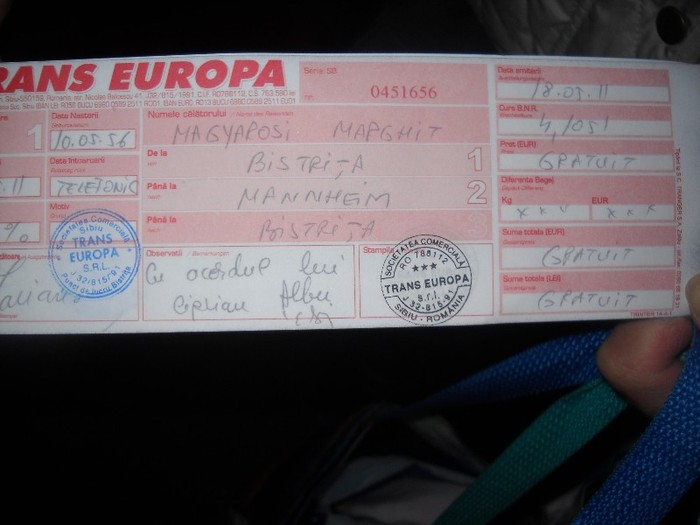 TRANS EUROPA
Seria SB
nr. 0451656
Data emiterii
18.05.11
Curs B.N.R.
4,1051
Pret (EUR)
GRATUIT
Diferenta Bagaj
Kg EUR
x x x x x x
Suma totala (EUR)
GRATUIT
Suma totala (LEI)
GRATUIT
1
Data Nasterii
10.05.56
Numele călătorului
MAGYAROSI MARGHIT
De la
BISTRIȚA 1
Până la
MANNHEIM 2
Până la
BISTRIȚA
.11
TELEFONIC
Motiv
%
Observatii
Cu acordul lui
Ciprian Albu
Stampila
Societatea Comerciala
Sibiu
TRANS
EUROPA
S.R.L.
J 32/815/91
Punct de lucru Bistrița
SOCIETATEA COMERCIALĂ
RO 788112
TRANS EUROPA
S.r.l.
J 32-815-91
SIBIU - ROMÂNIA